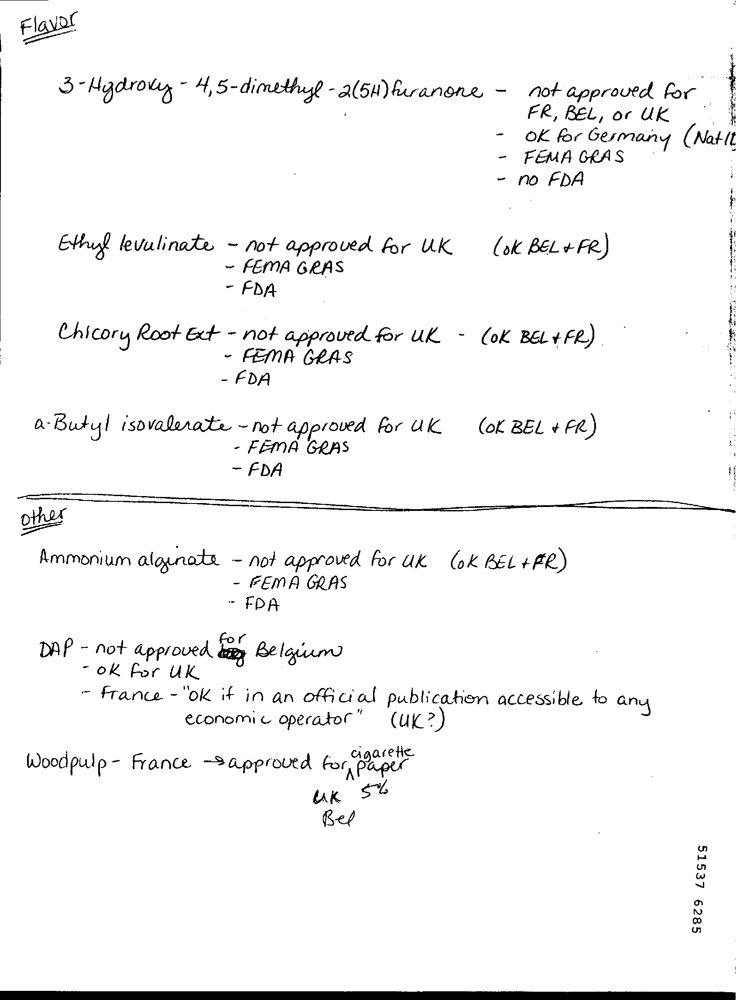 Flavor
3-Hydroxy-4,5-dimethyl-2(5H)furanone - not approved for
FR, BEL, or UK
- OK for Germany (Nat'l
- FEMA GRAS
- no FDA
Ethyl levulinate - not approved for UK (OK BEL + FR)
- FEMA GRAS
- FDA
Chicory Root Ext - not approved for UK - (OK BEL + FR)
- FEMA GRAS
- FDA
a-Butyl isovalerate - not approved for UK (OK BEL + FR)
- FEMA GRAS
- FDA
other
Ammonium alginate - not approved for UK (OK BEL + FR)
- FEMA GRAS
- FDA
DAP - not approved for Belgium
- OK for UK
- France - "OK if in an official publication accessible to any
economic operator" (UK?)
Woodpulp - France → approved for cigarette paper
UK 5%
Bel
51537 6285